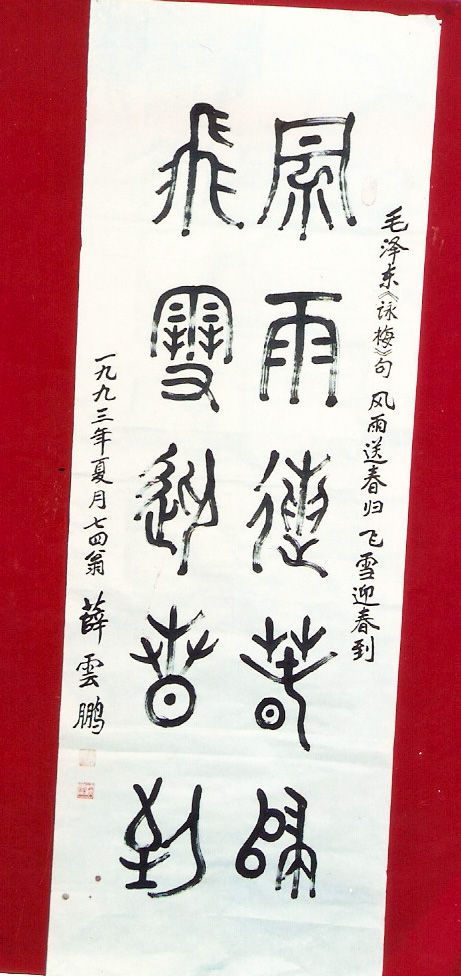 毛泽东《咏梅》句 风雨送春归 飞雪迎春到
風雨送春歸
飛雪迎春到
一九九三年夏月七四翁 薛雲鹏